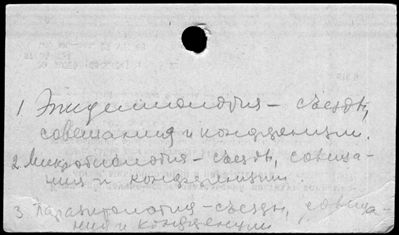 1 Эпидемиология – съезды,
совещания и конференции.
2. Микробиология – съезды, совеща-
ния и конференции.
3. Паразитология – съезды, совеща-
ния и конференции